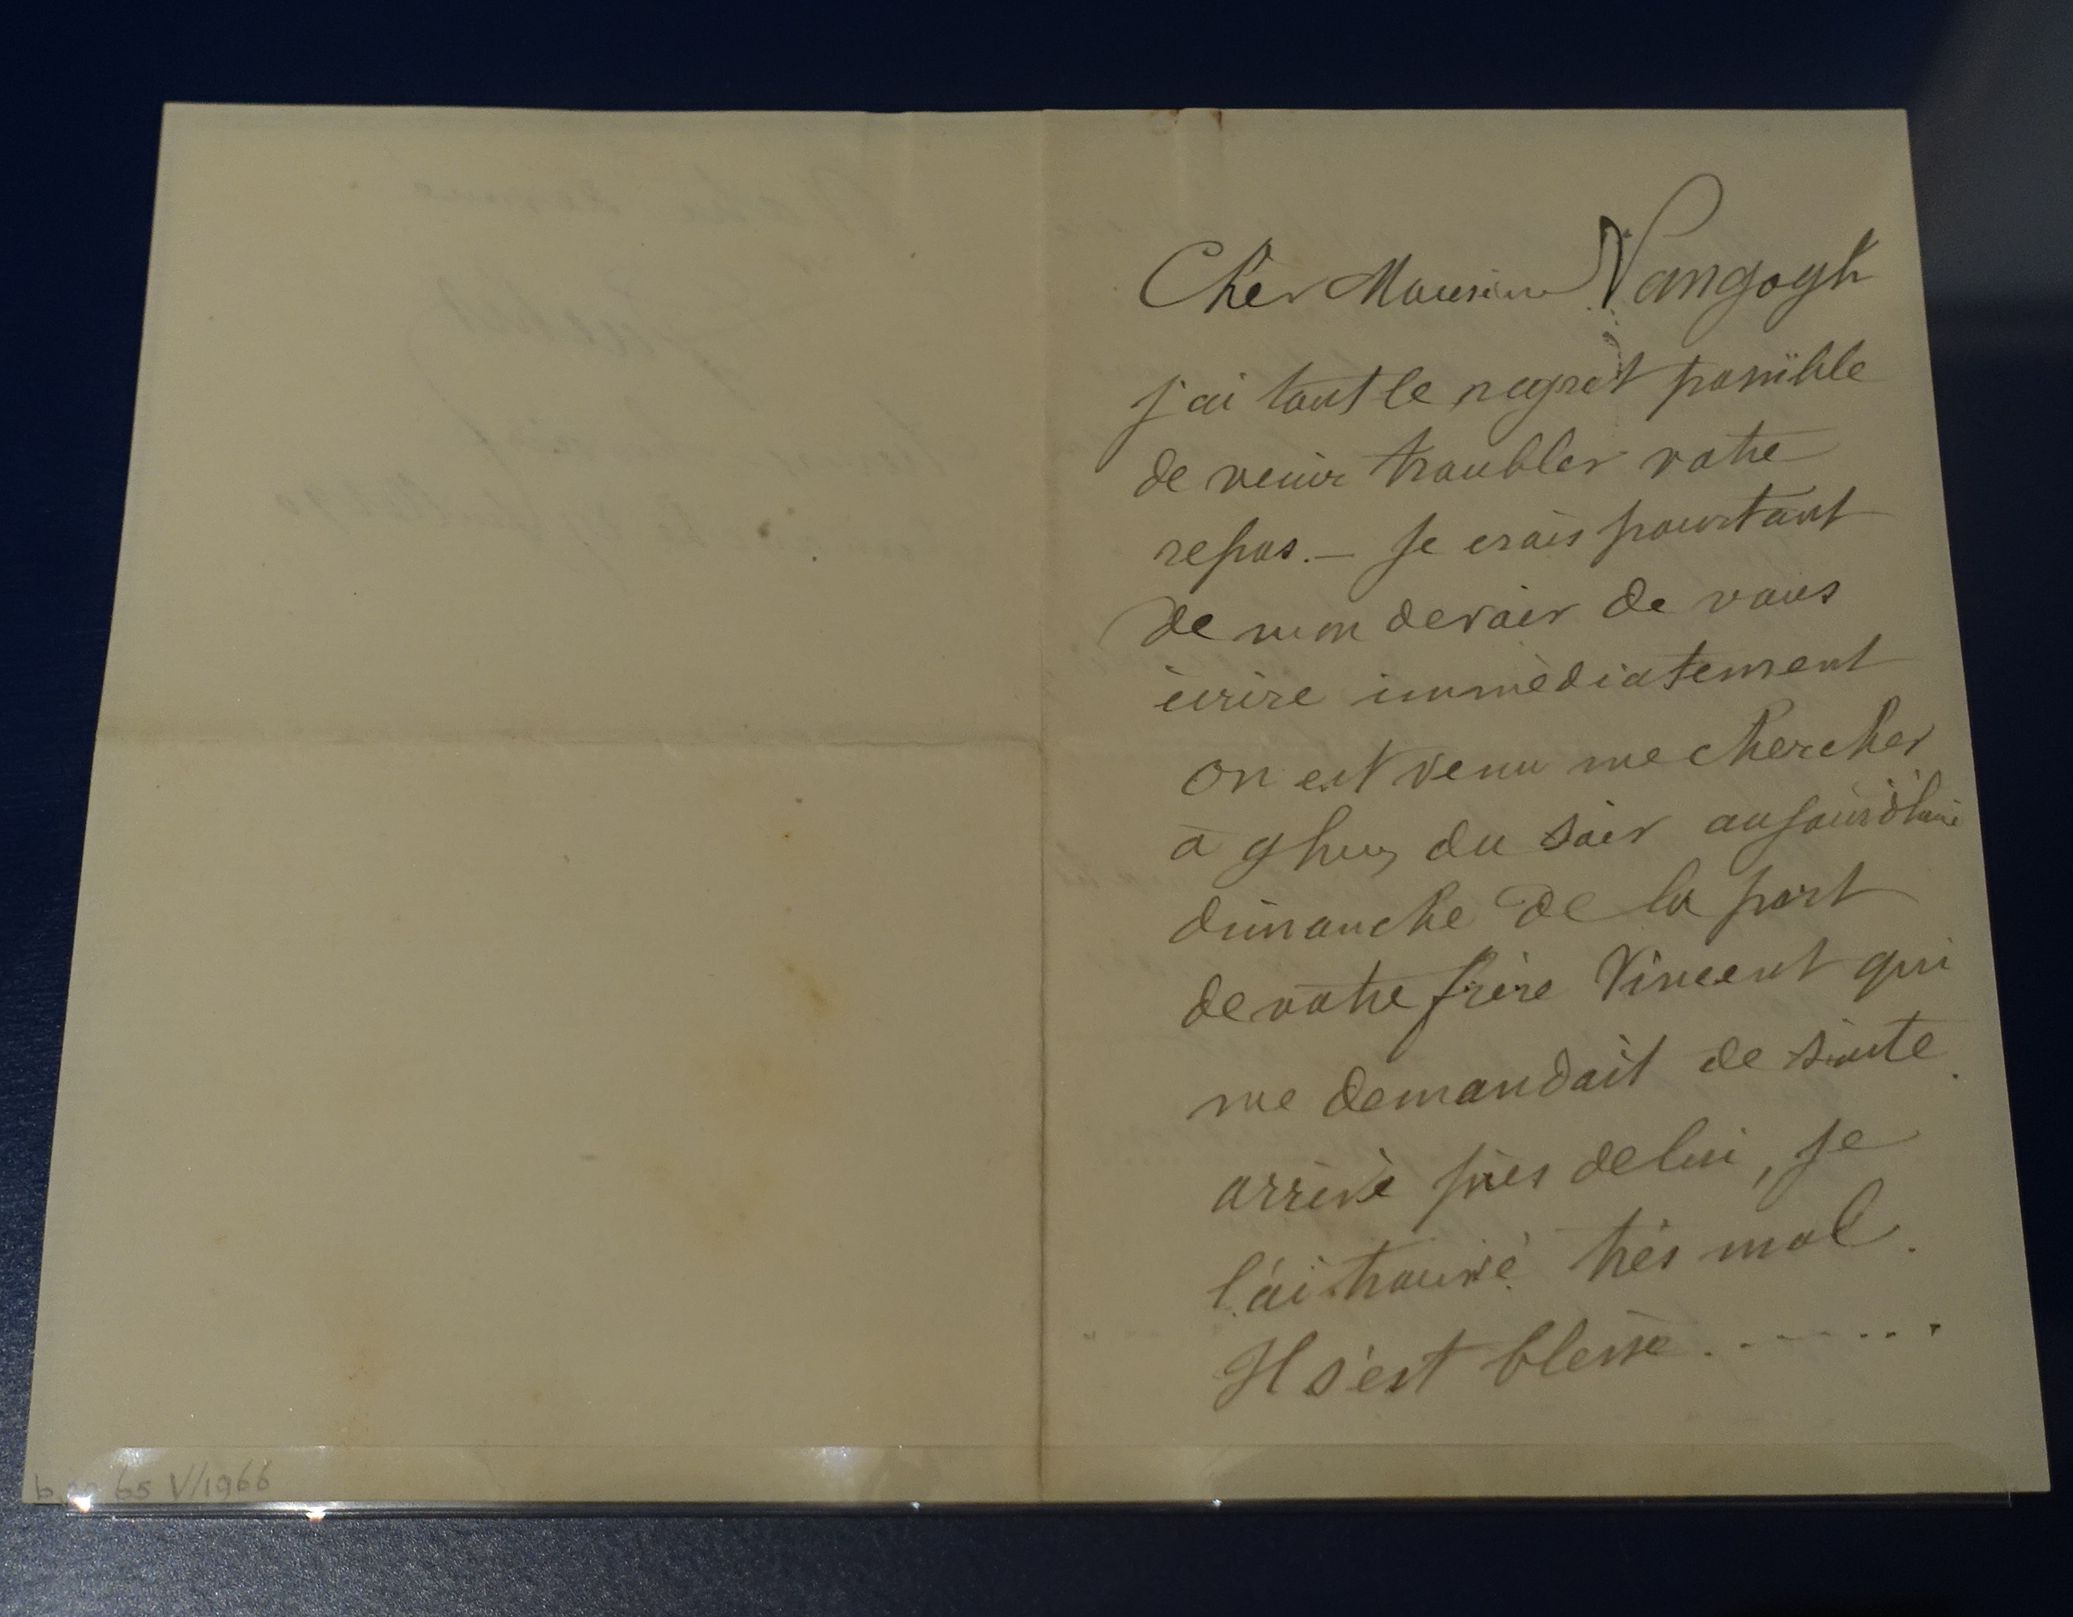 Cher Monsieur Vangogh
j'ai tout le regret possible
de venir troubler votre
repos. — Je crois pourtant
de mon devoir de vous
écrire immédiatement
on est venu me chercher
à 9 hres du soir aujourd'hui
dimanche de la part
de votre frère Vincent qui
me demandait de suite.
arrivé près de lui, je
l'ai trouvé très mal.
Il s'est blessé .........
65 V/1966